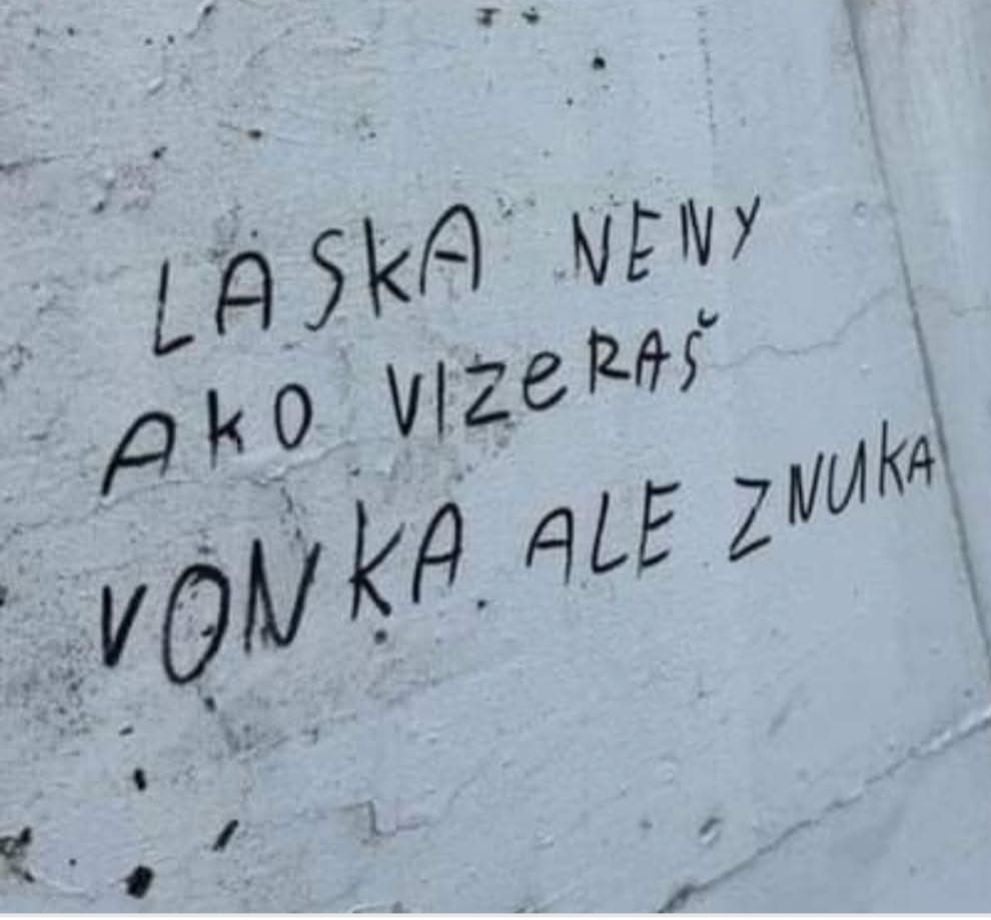 LASKA NENY
AKO VIZERAŠ
VONKA ALE ZNUKA